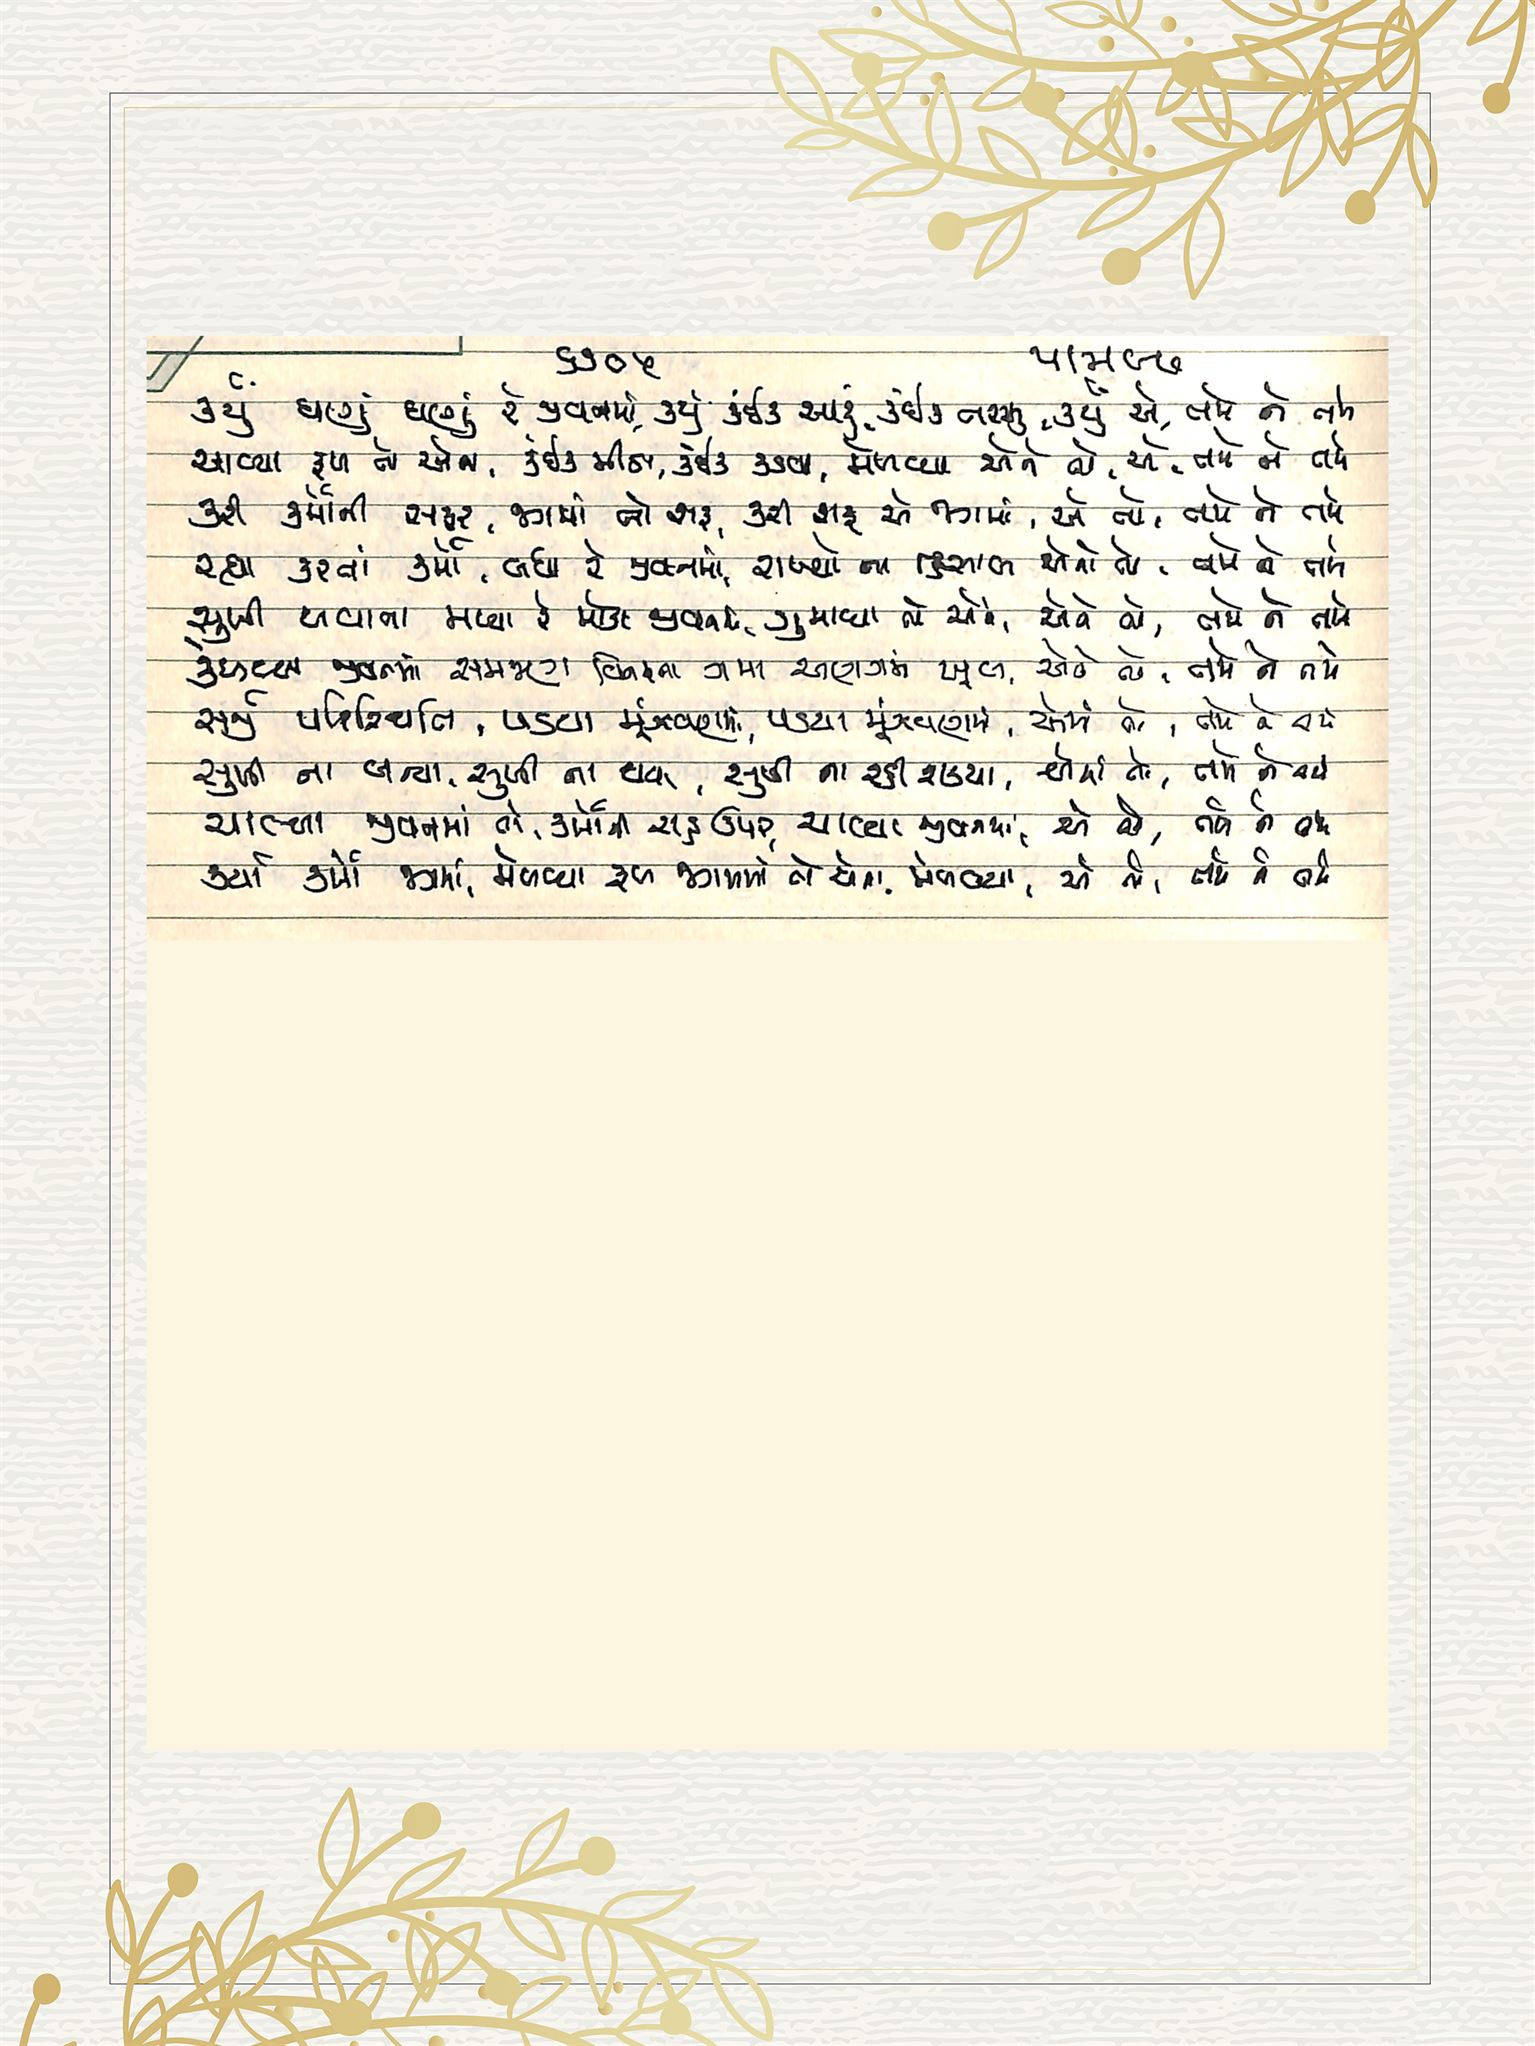 ૬૭૦૫
કર્યું ઘણું ઘણું રે જીવનમાં, કર્યું કંઈક સારું, કંઈક નરસું, કર્યું એ, તમે ને તમે
આવ્યા ફળ તો એના, કંઈક મીઠા, કંઈક કડવા, મેળવ્યા એને તો, એ, તમે ને તમે
કરી કર્મોની સફર, જગમાં તો શરૂ, કરી શરૂ એ જગમાં, એ તો, તમે ને તમે
રહ્યા કરતાં કર્મો, બધા રે જીવનમાં, રાખ્યો ના હિસાબ એનો તો, તમે ને તમે
સુખી થવાના મળ્યા રે મોકા જીવનમાં, ગુમાવ્યા તો એને, એને તો, તમે ને તમે
જીવનમાં સમજણ વિનાના ગમા અણગમા ખૂબ, એને તો, તમે ને તમે
સર્જી પરિસ્થિતિ, પડયા મૂંઝવણમાં, પડયા મૂંઝવણમાં, એમાં તો, તમે ને તમે
સુખી ના બન્યા, સુખી ના થયા, સુખી ના રહી શકયા, એમાં તો, તમે ને તમે
ચાલ્યા જીવનમાં તો, કર્મોની રાહ ઉપર, ચાલ્યા જીવનમાં, એ તો, તમે ને તમે
કર્યા કર્મો જગમાં, મેળવ્યા ફળ જગમાં તો એના, મેળવ્યા, એ તો, તમે ને તમે